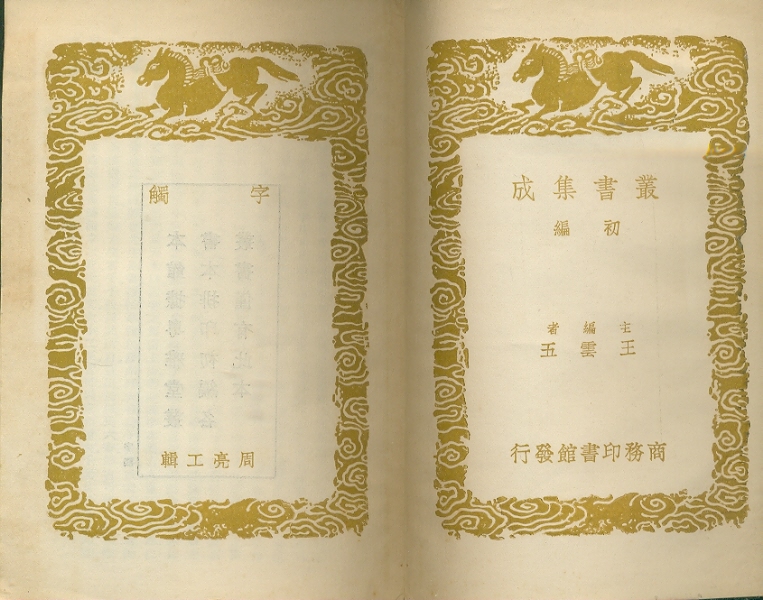 叢書集成
初編
主編者
王雲五
商務印書館發行
字觸
周亮工輯